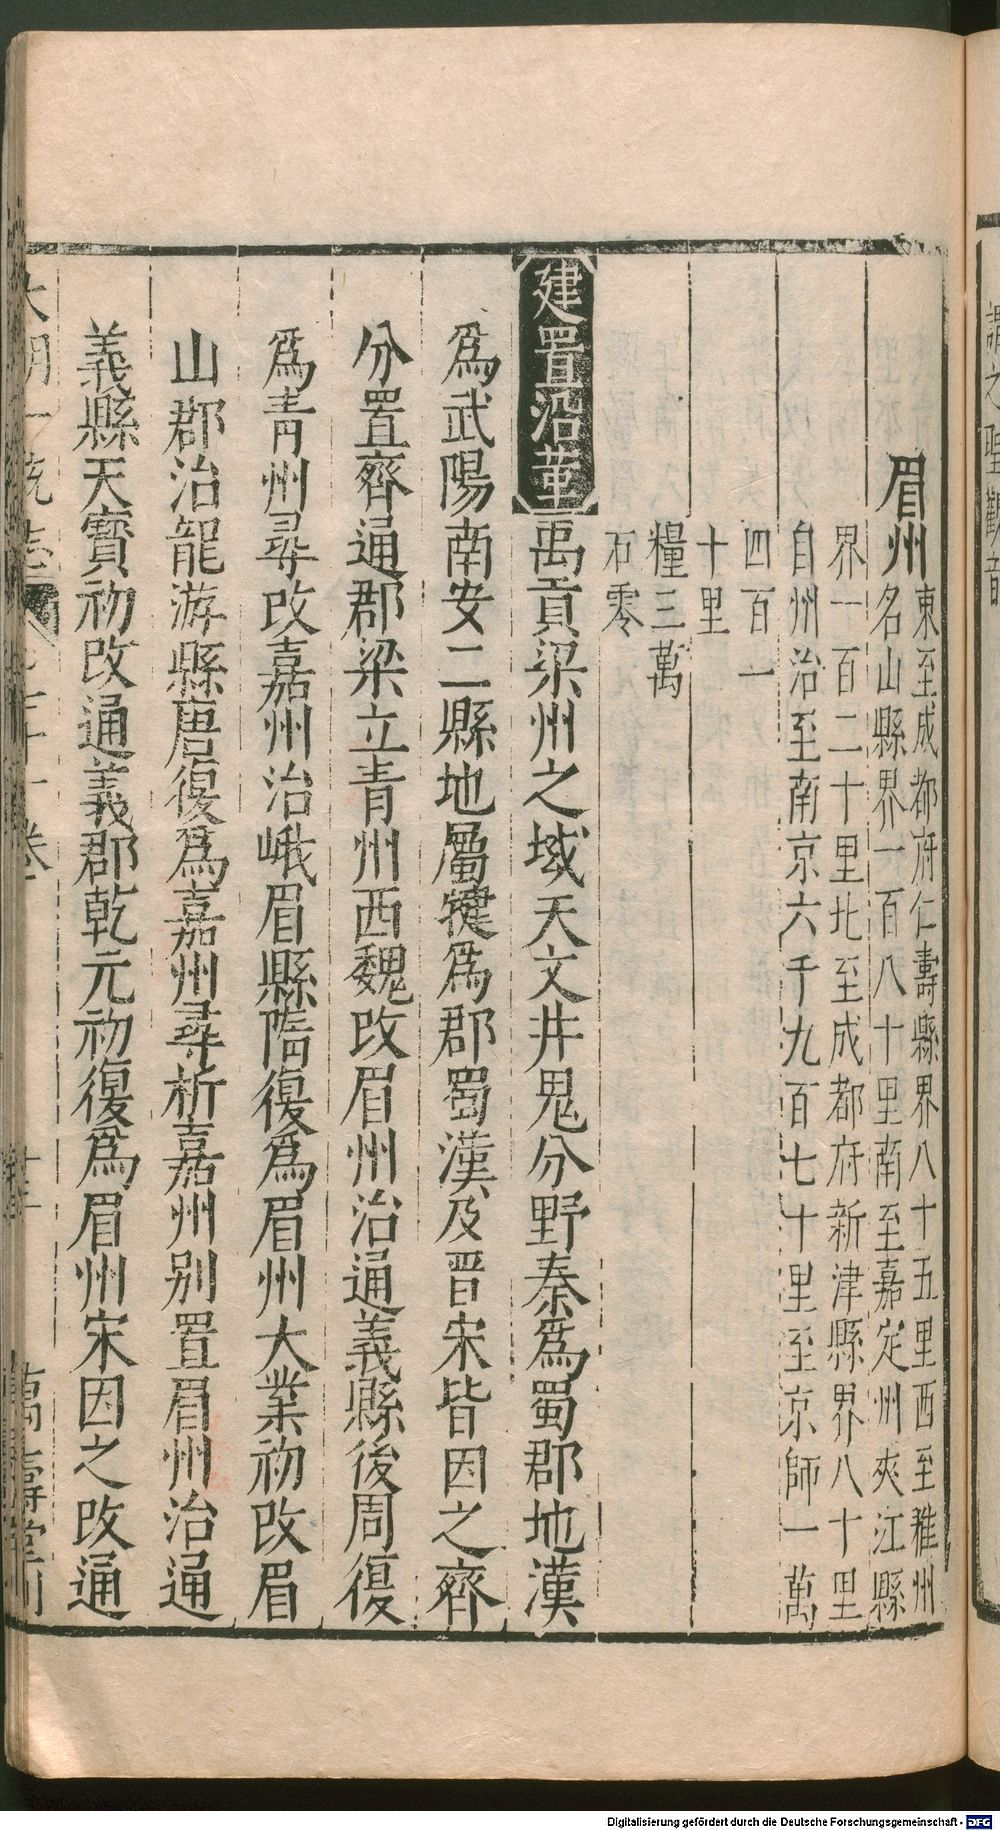 眉州
東至成都府仁壽縣界八十五里西至稚州
名山縣界一百八十里南至嘉定州夾江縣
界一百二十里北至成都府新津縣界八十里
自州治至南京六千九百七十里至京師一萬
四百一
十里
糧三萬
石零
建置沿革禹貢梁州之域天文井鬼分野秦爲蜀郡地漢
爲武陽南安二縣地屬犍爲郡蜀漢及晋宋皆因之齊
分置齊通郡梁立青州西魏改眉州治通義縣後周復
爲青州尋改嘉州治峨眉縣隋復爲眉州大業初改眉
山郡治龍游縣唐復爲嘉州尋析嘉州別置眉州治通
義縣天寶初改通義郡乾元初復爲眉州宋因之改通
大明一統志
萬壽堂刊
謂之聖觀音
Digitalisierung gefördert durch die Deutsche Forschungsgemeinschaft - DFG